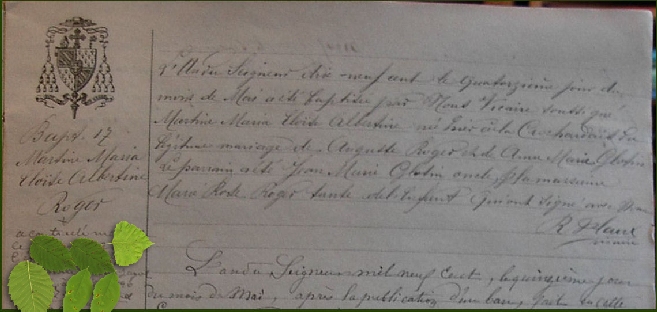 Bapt. 17
Martine Maria
Eloïse Albertine
Roger
L'an du Seigneur dix-neuf cent le quatorzième jour du
mois de Mai a été baptisée par Nous Vicaire soussigné
Martine Maria Eloïse Albertine née hier à la du
légitime mariage de Auguste Roger et de Anne Marie
Le parrain a été Jean Marie oncle et la marraine
Maria Rose Roger tante de l'enfant qui ont signé avec
R.
vicaire
L'an du Seigneur mil neuf cent, le quinzième jour
du mois de Mai, après la publication d'un ban, fait en cette